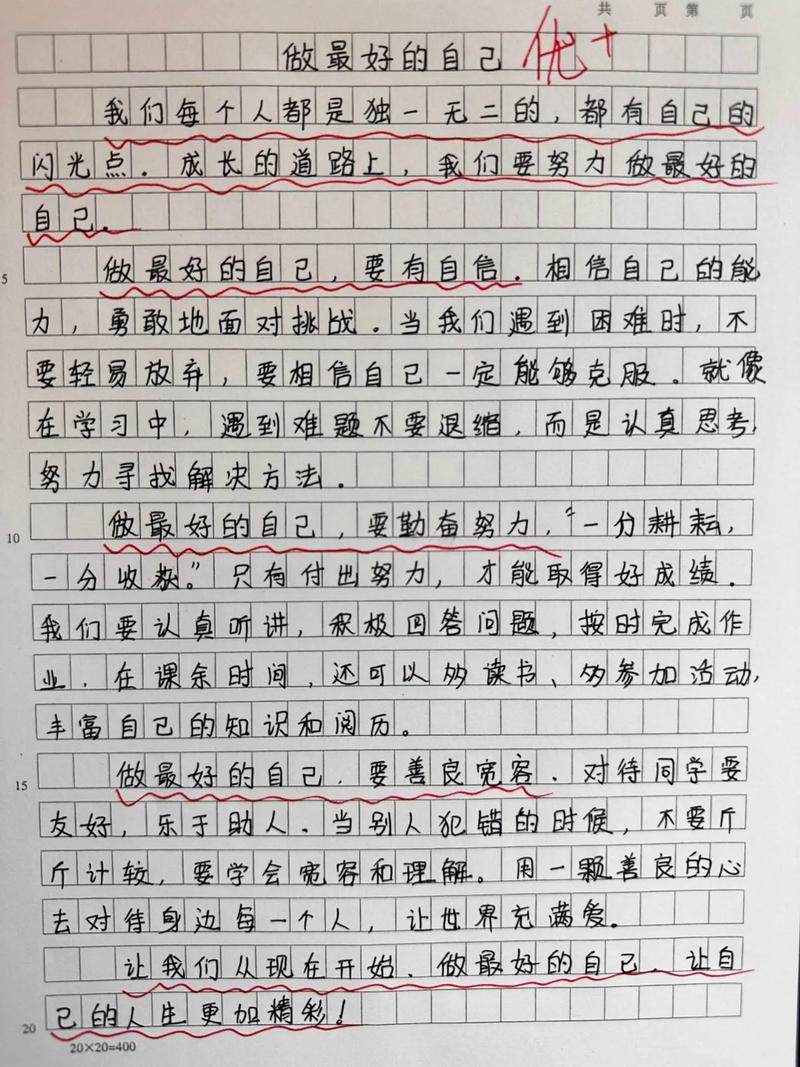 共 页 第 页
做最好的自己 优+
我们每个人都是独一无二的，都有自己的
闪光点．成长的道路上，我们要努力做最好的
自己．
做最好的自己，要有自信．相信自己的能
力，勇敢地面对挑战．当我们遇到困难时，不
要轻易放弃，要相信自己一定能够克服．就像
在学习中，遇到难题不要退缩，而是认真思考，
努力寻找解决方法．
做最好的自己，要勤奋努力，“一分耕耘，
一分收获。”只有付出努力，才能取得好成绩．
我们要认真听讲，积极回答问题，按时完成作
业．在课余时间，还可以多读书、多参加活动，
丰富自己的知识和阅历。
做最好的自己，要善良宽容．对待同学要
友好，乐于助人．当别人犯错的时候，不要斤
斤计较，要学会宽容和理解。用一颗善良的心
去对待身边每一个人，让世界充满爱。
让我们从现在开始、做最好的自己、让自
己的人生更加精彩！
5
10
15
20
20×20=400